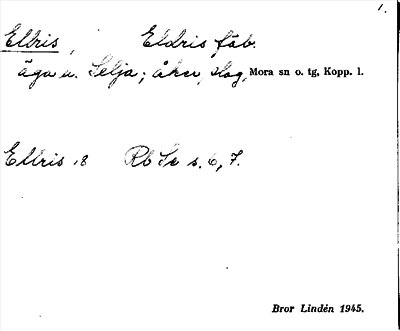 1.
Elbris, Eldris fäb.
äga u. Selja; åker, skog, Mora sn o. tg, Kopp. l.
Elbris 18 Rb Sk s. 6, 7.
Bror Lindén 1945.